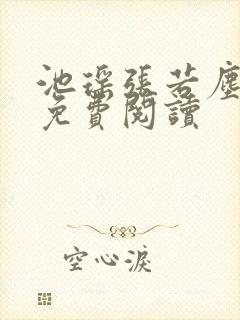 池瑤張若塵
免費閱讀
空心淚